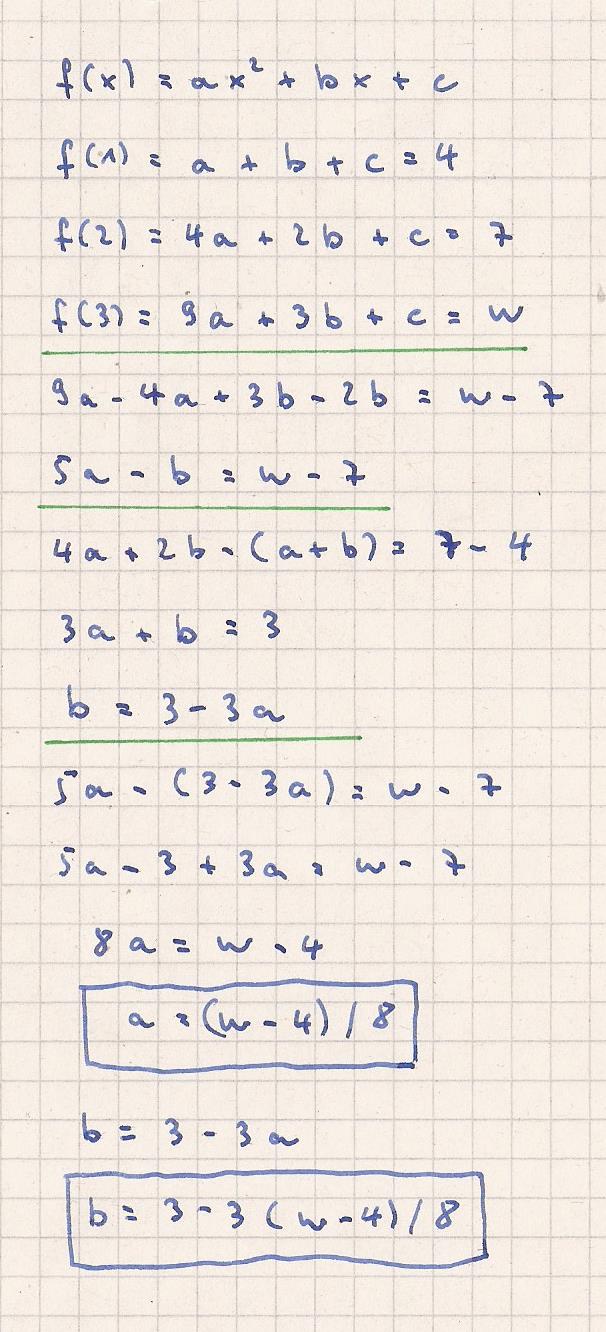 f(x) = ax² + bx + c
f(1) = a + b + c = 4
f(2) = 4a + 2b + c = 7
f(3) = 9a + 3b + c = w
9a - 4a + 3b - 2b = w - 7
5a - b = w - 7
4a + 2b - (a + b) = 7 - 4
3a + b = 3
b = 3 - 3a
5a - (3 - 3a) = w - 7
5a - 3 + 3a = w - 7
8a = w - 4
a = (w - 4) / 8
b = 3 - 3a
b = 3 - 3 (w - 4) / 8